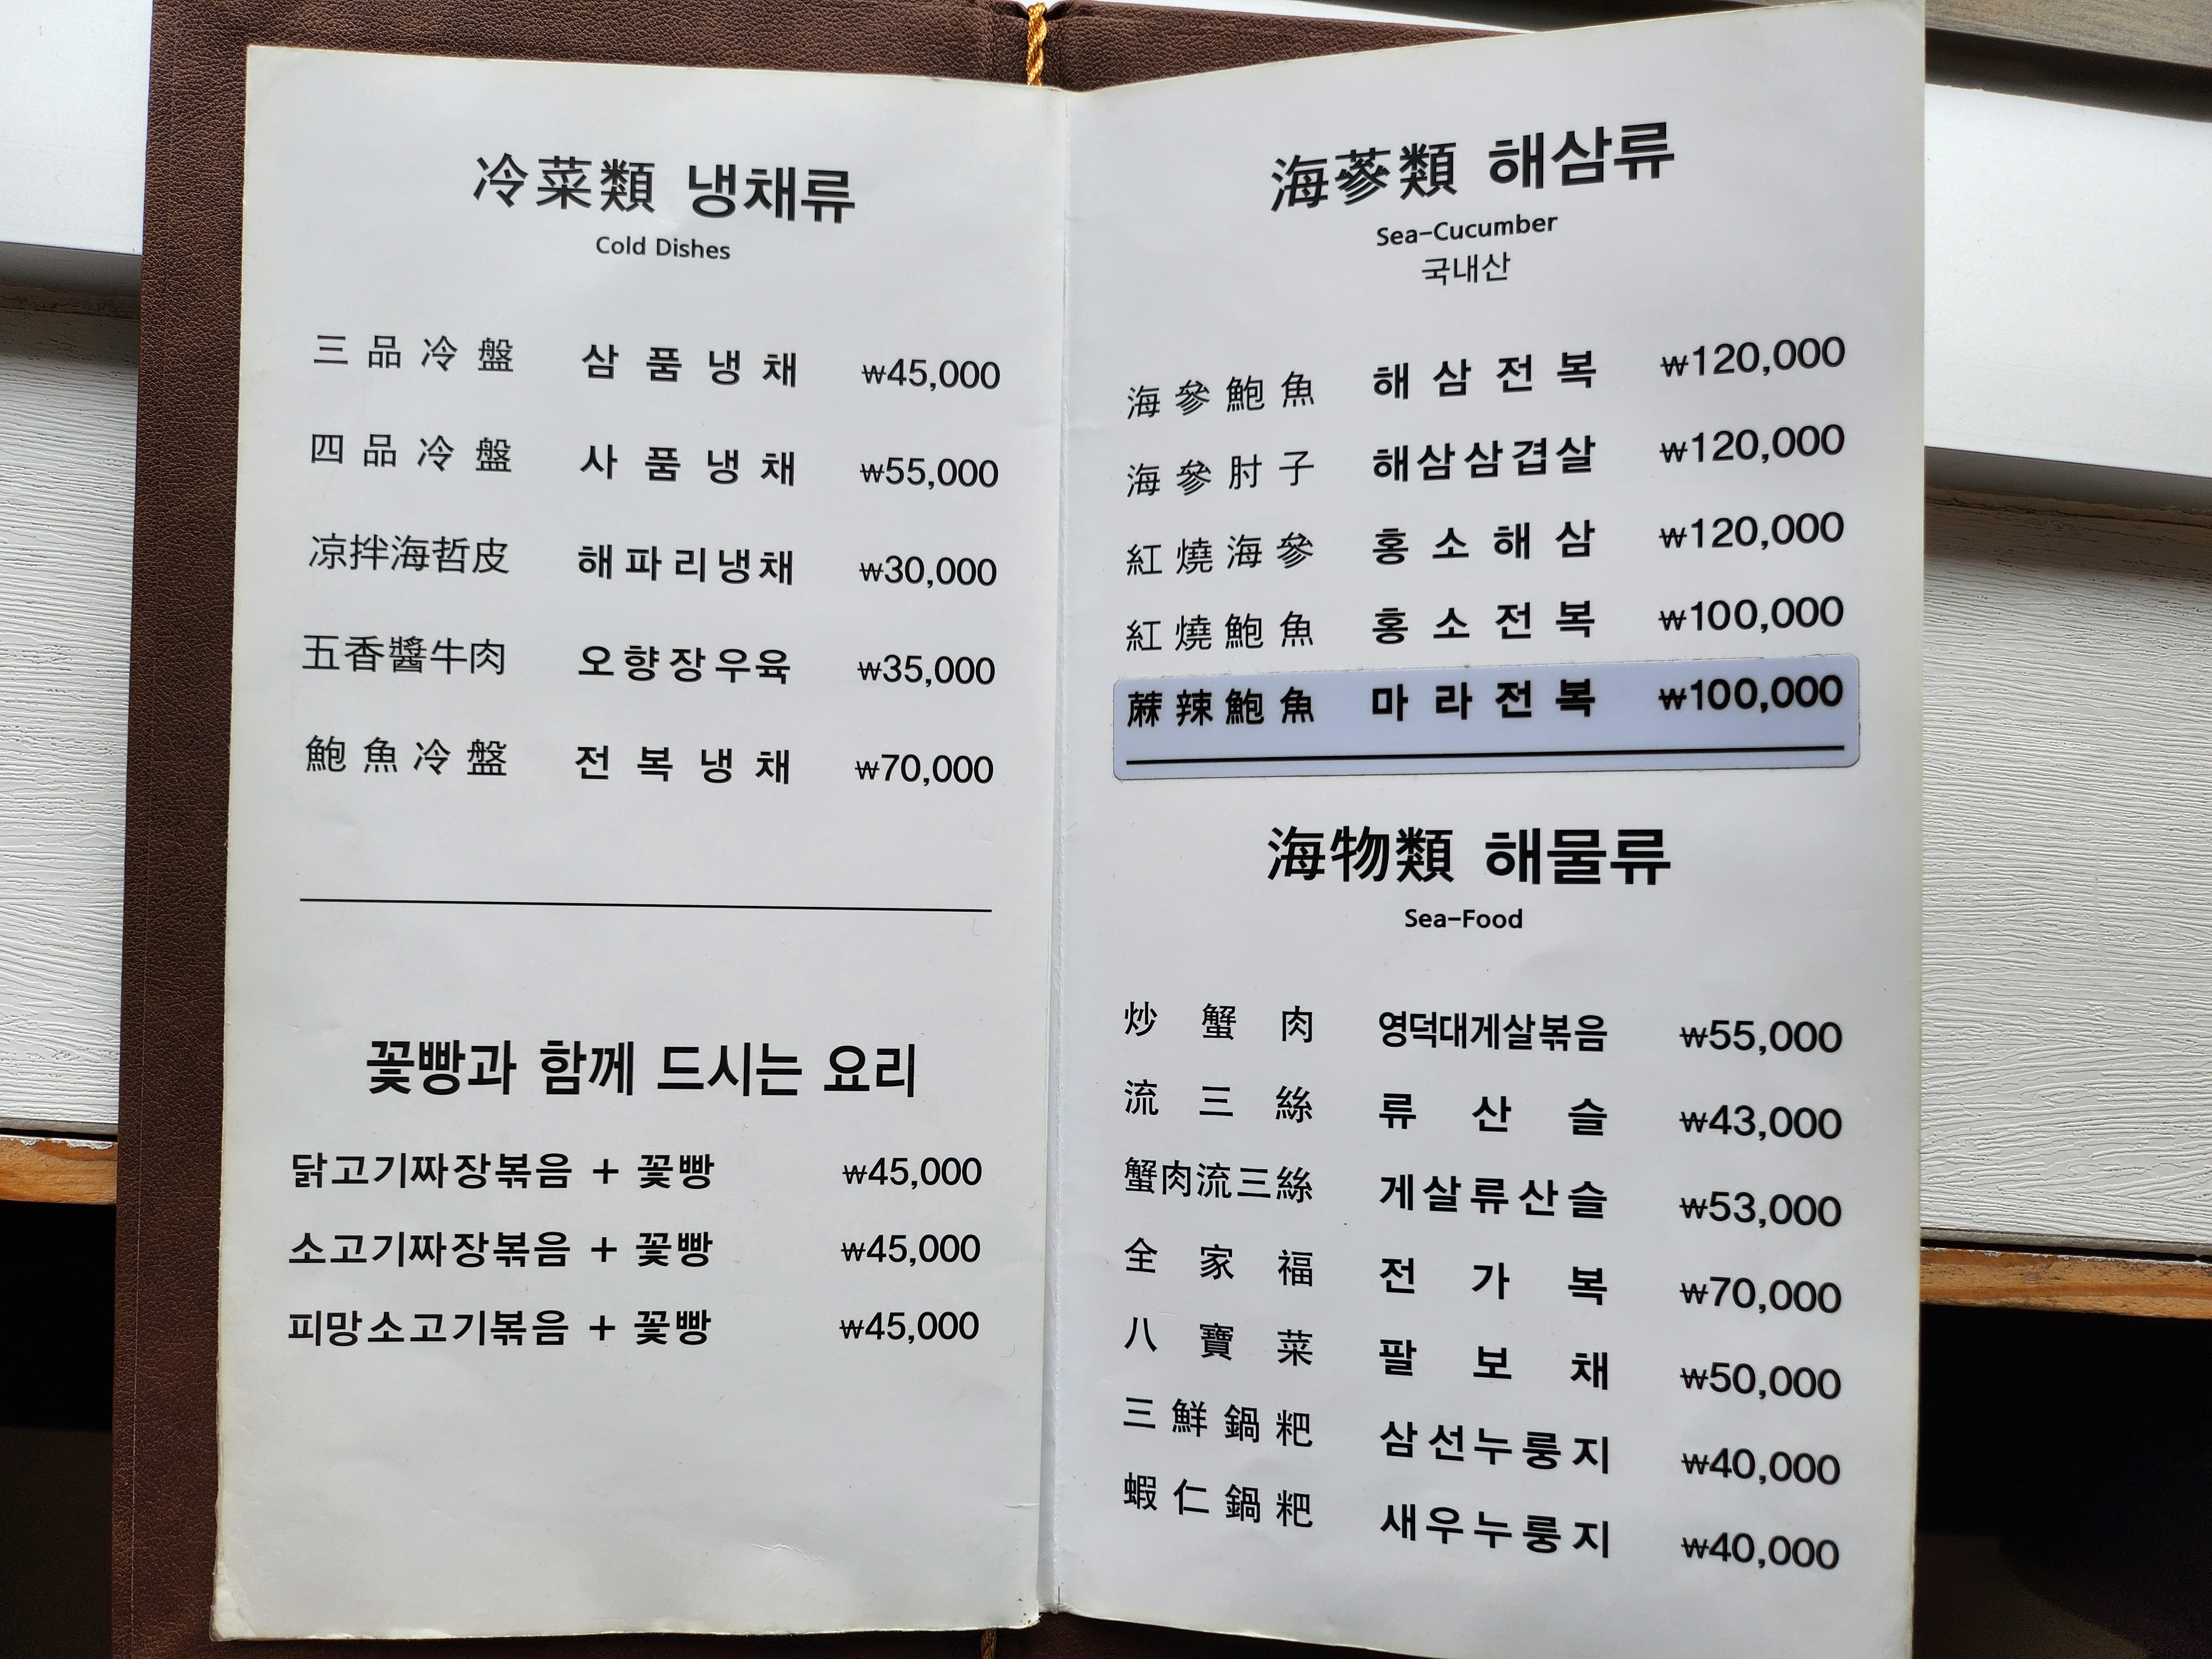 冷菜類 냉채류
Cold Dishes
三品冷盤 삼품냉채 ₩45,000
四品冷盤 사품냉채 ₩55,000
凉拌海哲皮 해파리냉채 ₩30,000
五香醬牛肉 오향장우육 ₩35,000
鮑魚冷盤 전복냉채 ₩70,000
꽃빵과 함께 드시는 요리
닭고기짜장볶음 + 꽃빵 ₩45,000
소고기짜장볶음 + 꽃빵 ₩45,000
피망소고기볶음 + 꽃빵 ₩45,000
海蔘類 해삼류
Sea-Cucumber
국내산
海參鮑魚 해삼전복 ₩120,000
海參肘子 해삼삼겹살 ₩120,000
紅燒海參 홍소해삼 ₩120,000
紅燒鮑魚 홍소전복 ₩100,000
蔴辣鮑魚 마라전복 ₩100,000
海物類 해물류
Sea-Food
炒蟹肉 영덕대게살볶음 ₩55,000
流三絲 류산슬 ₩43,000
蟹肉流三絲 게살류산슬 ₩53,000
全家福 전가복 ₩70,000
八寶菜 팔보채 ₩50,000
三鮮鍋粑 삼선누룽지 ₩40,000
蝦仁鍋粑 새우누룽지 ₩40,000